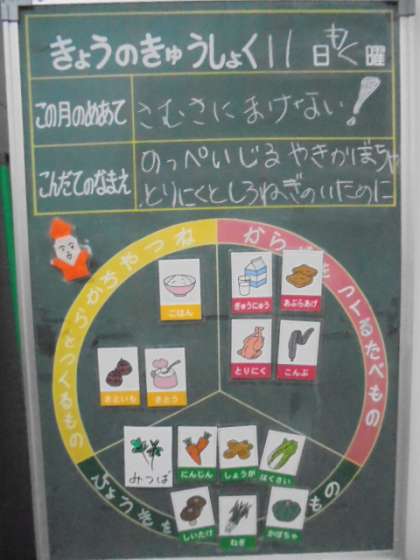 きょうのきゅうしょく 11日 もく曜
この月のめあて
さむさに まけない!
こんだてのなまえ
のっぺいじる やきかぼちゃ
とりにくとしろねぎのいために
ねつやちからをつくるもの
からだをつくるたべもの
ごはん
ぎゅうにゅう
あぶらあげ
とりにく
こんぶ
さといも
さとう
みつば
にんじん
しょうが
はくさい
しいたけ
ねぎ
かぼちゃ
もの